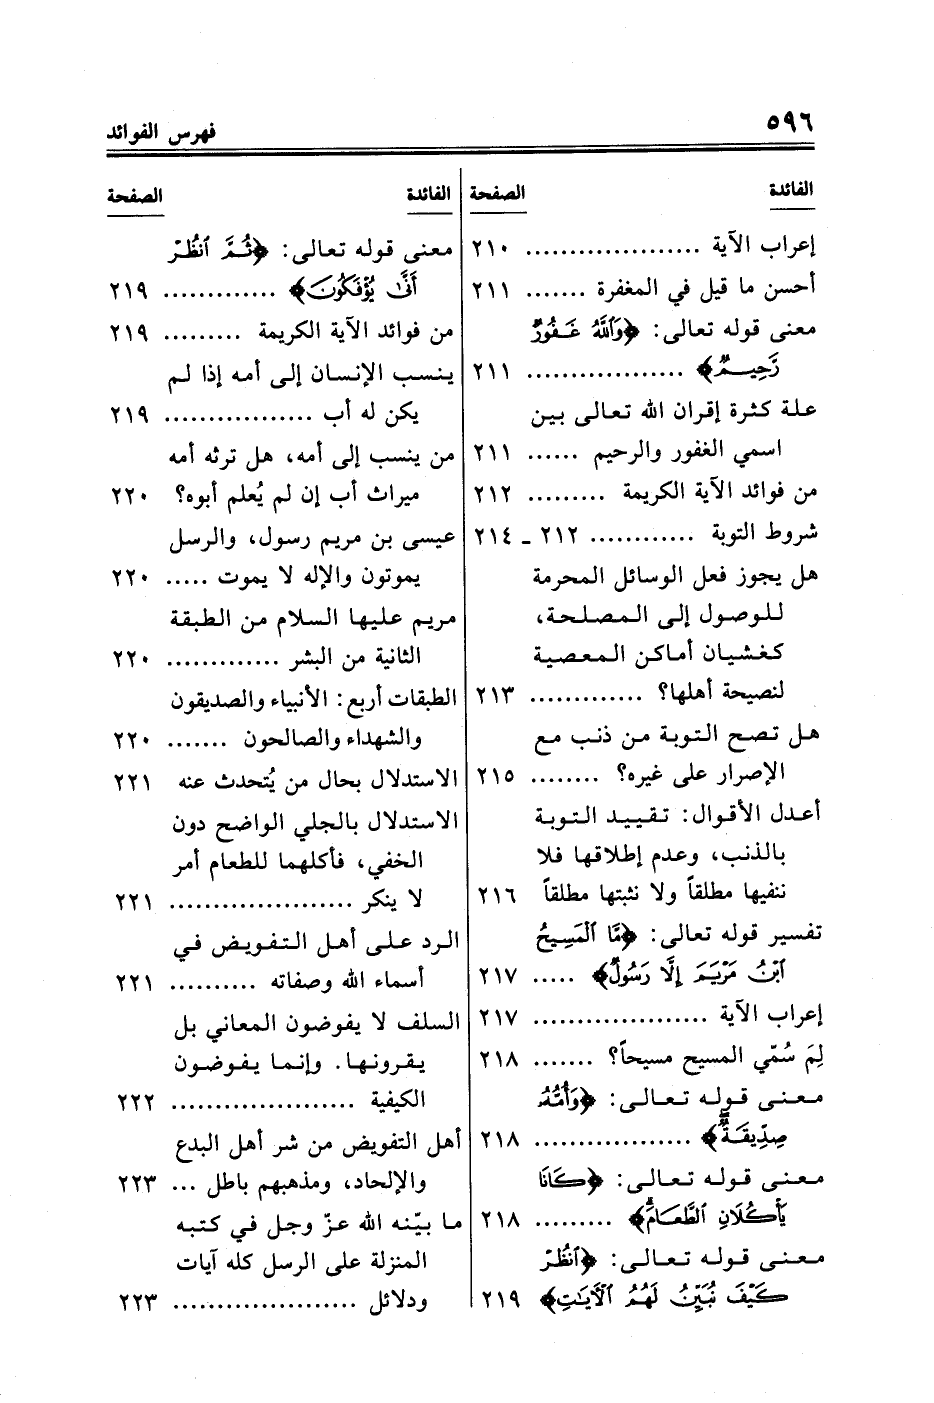 ٥٩٦
فهرس الفوائد
الفائدة الصفحة
إعراب الآية .................... ٢١٠
أحسن ما قيل في المغفرة ....... ٢١١
معنى قوله تعالى: ﴿وَٱللَّهُ غَفُورٌ
رَّحِيمٌ﴾ .................. ٢١١
علة كثرة إقران الله تعالى بين
اسمي الغفور والرحيم ...... ٢١١
من فوائد الآية الكريمة ......... ٢١٢
شروط التوبة ............ ٢١٢ ـ ٢١٤
هل يجوز فعل الوسائل المحرمة
للوصول إلى المصلحة،
كغشيان أماكن المعصية
لنصيحة أهلها؟ ............. ٢١٣
هل تصح التوبة من ذنب مع
الإصرار على غيره؟ ........ ٢١٥
أعدل الأقوال: تقييد التوبة
بالذنب، وعدم إطلاقها فلا
ننفيها مطلقاً ولا نثبتها مطلقاً ٢١٦
تفسير قوله تعالى: ﴿مَّا ٱلْمَسِيحُ
ٱبْنُ مَرْيَمَ إِلَّا رَسُولٌ﴾ ..... ٢١٧
إعراب الآية .................... ٢١٧
لِمَ سُمّي المسيح مسيحاً؟ ....... ٢١٨
معنى قوله تعالى: ﴿وَأُمُّهُۥ
صِدِّيقَةٌۖ﴾ .................. ٢١٨
معنى قوله تعالى: ﴿كَانَا
يَأْكُلَانِ ٱلطَّعَامَۗ﴾ ......... ٢١٨
معنى قوله تعالى: ﴿ٱنظُرْ
كَيْفَ نُبَيِّنُ لَهُمُ ٱلْآيَـٰتِ﴾ ٢١٩
الفائدة الصفحة
معنى قوله تعالى: ﴿ثُمَّ ٱنظُرْ
أَنَّىٰ يُؤْفَكُونَ﴾ ............. ٢١٩
من فوائد الآية الكريمة ......... ٢١٩
ينسب الإنسان إلى أمه إذا لم
يكن له أب ................. ٢١٩
من ينسب إلى أمه، هل ترثه أمه
ميراث أب إن لم يُعلم أبوه؟ ٢٢٠
عيسى بن مريم رسول، والرسل
يموتون والإله لا يموت ..... ٢٢٠
مريم عليها السلام من الطبقة
الثانية من البشر ............. ٢٢٠
الطبقات أربع: الأنبياء والصديقون
والشهداء والصالحون ....... ٢٢٠
الاستدلال بحال من يُتحدث عنه ٢٢١
الاستدلال بالجلي الواضح دون
الخفي، فأكلهما للطعام أمر
لا ينكر ..................... ٢٢١
الرد على أهل التفويض في
أسماء الله وصفاته .......... ٢٢١
السلف لا يفوضون المعاني بل
يقرونها. وإنما يفوضون
الكيفية ..................... ٢٢٢
أهل التفويض من شر أهل البدع
والإلحاد، ومذهبهم باطل ... ٢٢٣
ما بيّنه الله عزّ وجل في كتبه
المنزلة على الرسل كله آيات
ودلائل ..................... ٢٢٣